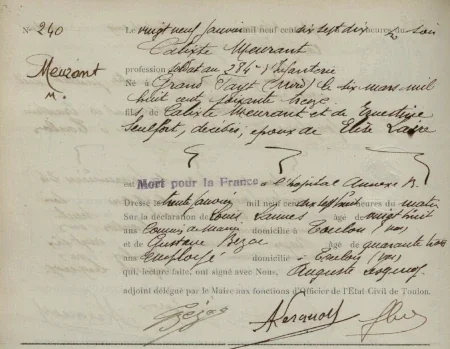 N° 240 Le vingt neuf janvier mil neuf cent dix sept dix heures du soir
Calixte Meurant
Meurant
M.
profession soldat au 284e Infanterie
Né à Grand Fayt (Nord) le six mars mil
huit cent soixante
fils de Calixte Meurant et de
décédés, époux de Elise
est Mort pour la France à l'hôpital Annexe
Dressé le trente janvier mil neuf cent dix sept huit heures du matin
Sur la déclaration de Louis âgé de vingt huit
ans Commis de Mairie domicilié à Toulon (Var)
et de Gustave âgé de quarante trois
ans Employé domicilié à Toulon (Var)
qui, lecture faite, ont signé avec Nous, Auguste
adjoint délégué par le Maire aux fonctions d'Officier de l'État Civil de Toulon.